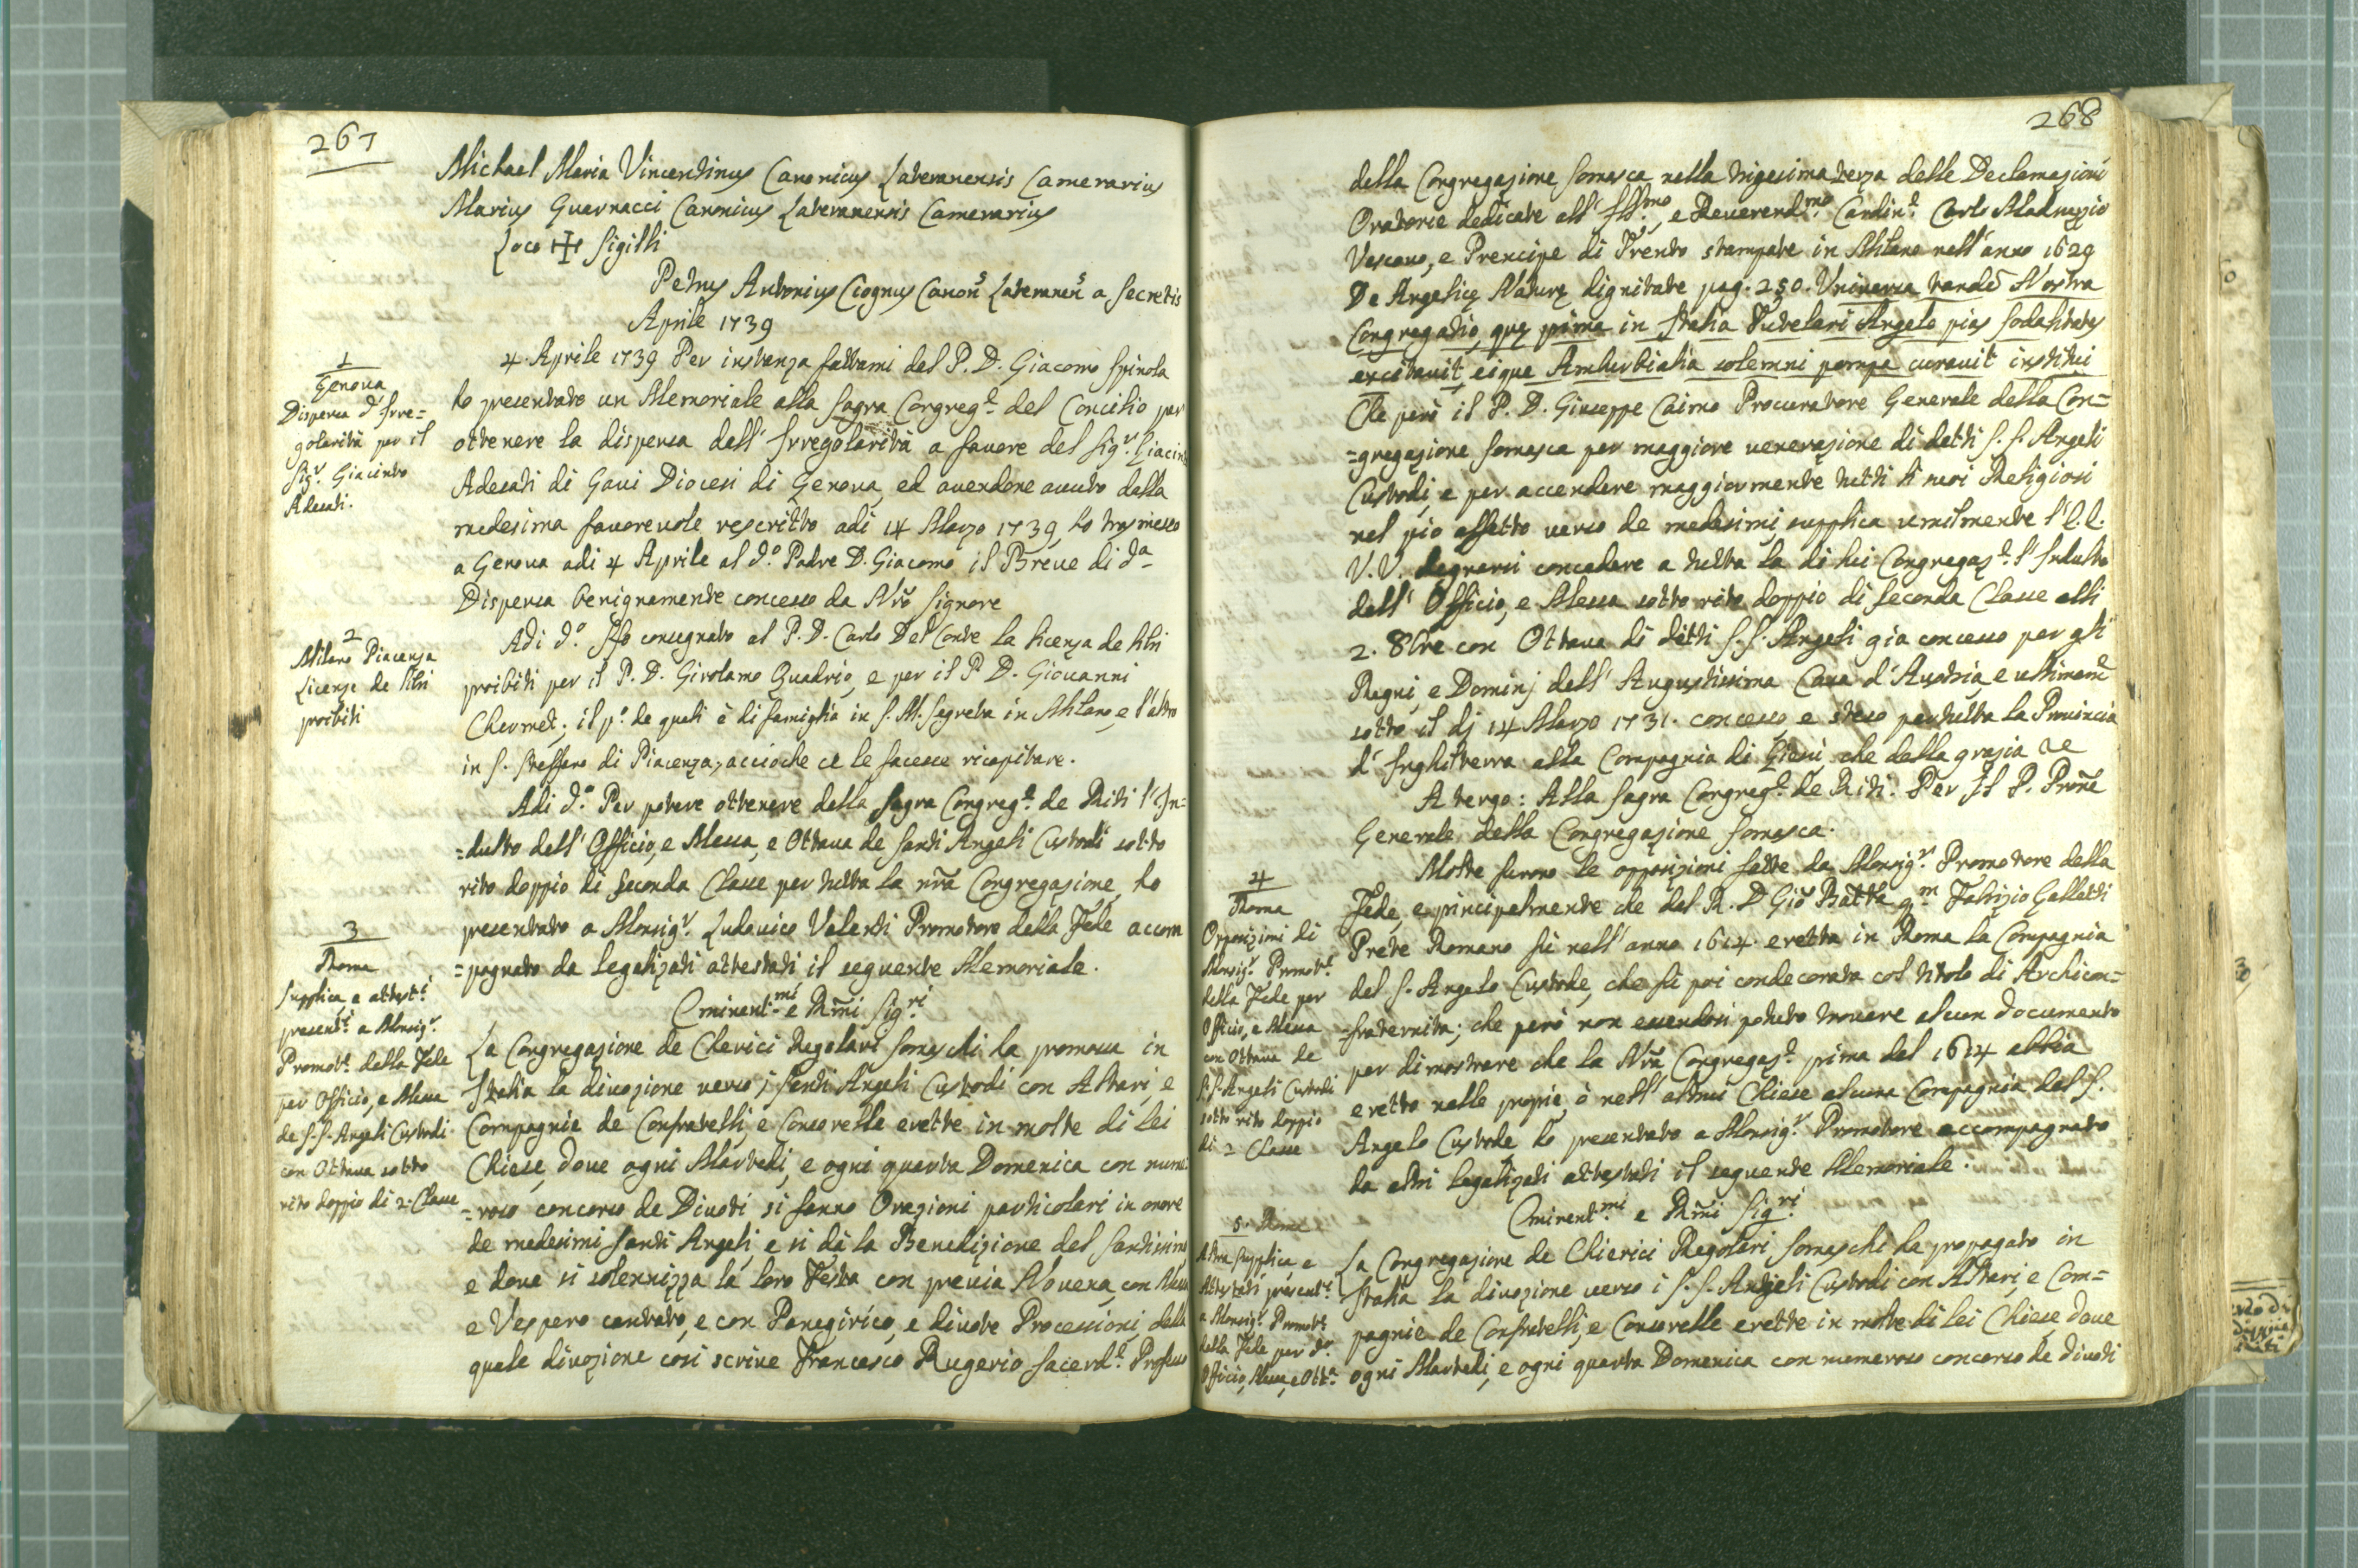 267
Michael Maria Vincentinus Canonicus Lateranensis Camerarius
Marius Guarnacci Canonicus Lateranensis Camerarius
Loco ✠ Sigilli
Petrus Antonius Ciognus Canon.s Lateranen.s a Secretis
Aprile 1739
1
Genova
Dispensa d'Irre=
golarità per il
Sig.r Giacinto
Adesati.
4. Aprile 1739 Per instanza fattami dal P. D. Giacomo Spinola
ho presentato un Memoriale alla Sagra Congreg.e del Concilio per
ottenere la dispensa dell'Irregolarità a favore del Sig.r Giacin
Adesati di Gavi Diocesi di Genova, ed avendone avuto dalla
medesima favorevole rescritto adi 14 Marzo 1739, ho trasmesso
a Genova adi 4 Aprile al d.o Padre D. Giacomo il Breve di d.a
Dispensa benignamente concesso da Nrõ Signore
2
Milano Piacenza
Licenze de libri
proibiti
Adi d.o Ho consegnato al P. D. Carlo Del Conte la licenza de libri
proibiti per il P. D. Girolamo Quadrio, e per il P. D. Giovanni
Chermet; il p.o de quali è di famiglia in S. M. Segreta in Milano, e l'altro
in S. Steffano di Piacenza, acciochè ce le facesse ricapitare.
Adi d.o Per potere ottenere dalla Sagra Congreg.e de Riti l'In=
=dulto dell'Officio, e Messa, e Ottava de Santi Angeli Custodi sotto
rito doppio di Seconda Classe per tutta la nrã Congregazione, ho
presentato a Monsig.r Ludovico Valenti Promotore della Fede accom
=pagnato da legalizati attestati, il seguente Memoriale.
3
Roma
Supplica, e attest.i
present.i a Monsig.r
Promot.e della Fede
per Officio, e Messa
de S.S. Angeli Custodi
con Ottava sotto
rito doppio di 2. Classe
Eminent.mi e Rm̃i Sig.ri
La Congregazione de Clerici Regolari Somaschi ha promossa in
Italia la divozione verso i Santi Angeli Custodi con Altari, e
Compagnie de Confratelli, e Consorelle erette in molte di lei
Chiese, dove ogni Martedi, e ogni quarta Domenica con nume
=roso concorso de Divoti si fanno Orazioni particolari in onore
de medesimi Santi Angeli, e si dà la Benedizione del Santissimo
e dove si solennizza la loro Festa con previa Novena, con Messa
e Vespero cantato, e con Panegirico, e divote Processioni, della
quale divozione così scrive Francesco Rugerio Sacerd.e Professo
268
della Congregazione Somasca nella trigesima terza delle Declamazioni
Oratorie dedicate all'Ill.mo, e Reverend.mo Cardin.e Carlo Madruzzio
Vescovo, e Prencipe di Trento stampate in Milano nell'anno 1629
De Angelicę Naturę dignitate pag. 250. Universa tandẽ Nostra
Congregatio, quę prima in Italia Tutelari Angelo pias sodalitates
excitavit, eique Amburbialia solemni pompa curavit institui
Che però il P. D. Giuseppe Caimo Procuratore Generale della Con=
=gregazione Somasca per maggiore venerazione di detti S. S. Angeli
Custodi, e per accendere maggiormente tutti li suoi Religiosi
nel pio affetto verso de medesimi, supplica umilmente l'E.E.
V.V. degnarsi concedere a tutta la di lui Congregaz.e l'Indulto
dell'Officio, e Messa sotto rito doppio di seconda Classe alli
2. 8bre con Ottava di detti S. S. Angeli già concesso per gli
Regni, e Dominj dell'Augustissima Casa d'Austria, e ultimam.e
sotto il dj 14 Marzo 1731. concesso, e steso per tutta la Provincia
d'Inghilterra alla Compagnia di Giesù, che della grazia &c
A tergo: Alla Sagra Congreg.e de Riti. Per Il P. Procr̃e
Generale della Congregazione Somasca.
4
Roma
Opposizioni di
Monsig.r Promot.e
della Fede per
Officio, e Messa
con Ottava de
S.S. Angeli Custodi
sotto rito doppio
di 2 Classe
Molte furono le opposizioni fatte da Monsig.r Promotore della
Fede, e principalmente che dal R. D. Gio: Batta q.m Fabrizio Galletti
Prete Romano fù nell'anno 1614. eretta in Roma la Compagnia
del S. Angelo Custode, che fù poi condecorata col titolo di Archicon=
=fraternita; che però non essendosi potuto trovare alcun documento
per dimostrare che la Nrã Congregaz.e prima del 1614 abbia
eretto nelle proprie, ò nell'altrui Chiese alcuna Compagnia del S.
Angelo Custode ho presentato a Monsig.r Promotore accompagnato
da altri legalizati attestati il seguente Memoriale.
5. Roma
Altra supplica, e
Attestati present.i
a Monsig.r Promot.e
della Fede per d.o
Officio, Messa, e Ott.a
Eminent.mi e Rm̃i Sig.ri
La Congregazione de Chierici Regolari Somaschi ha propagato in
Italia la divozione verso i S. S. Angieli Custodi con Altari, e Com=
pagnie de Confratelli, e Consorelle erette in molte di lei Chiese, dove
ogni Martedi, e ogni quarta Domenica con numeroso concorso de divoti